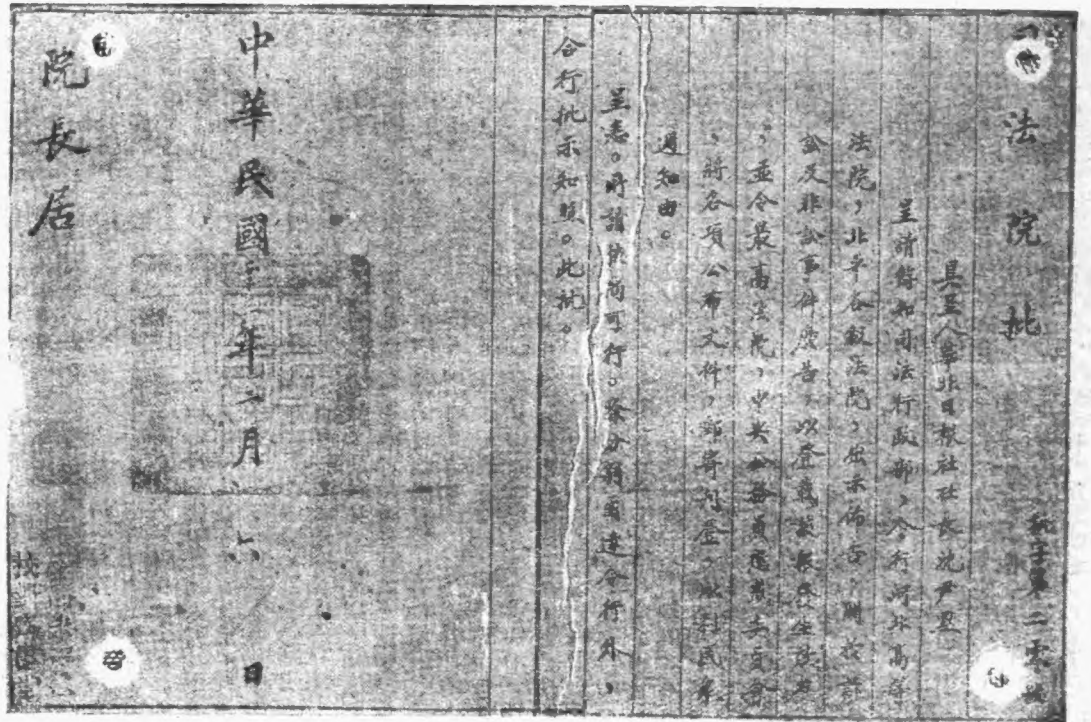 司法院批
批字第二零號
具呈人華北日報社社長沈尹默
呈請飭知司法行政部，令行河北高等
法院，北平各級法院，
訟及非訟事件廣告，以登載該報發生效力
，並令最高法院，中央公務員懲戒委員會
，將各項公布文件，郵寄刊登，以利民眾
週知由。
呈悉。所請事尚可行。除分別函達令行外，
合行批示知照。此批。
中華民國二十一年二月六日
院長居